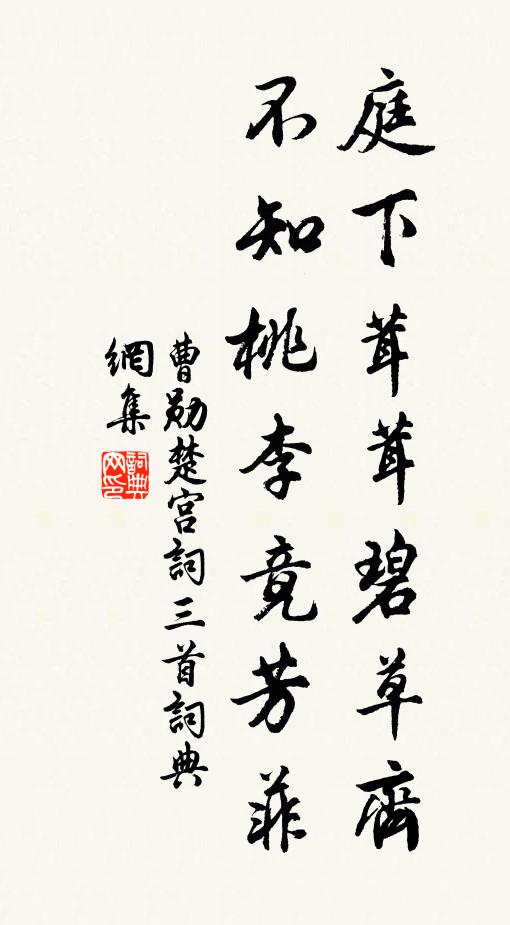 庭下茸茸碧草齊
不知桃李竟芳菲
曹勛楚宮詞三首詞典
網集
詞典
网印